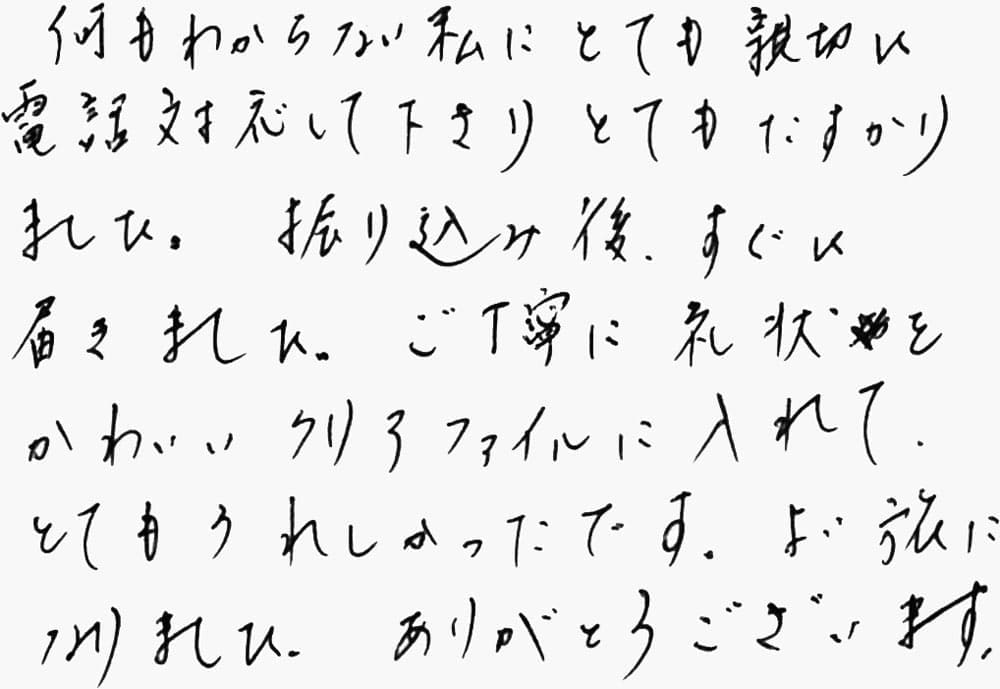 何もわからない私にとても親切に
電話対応して下さりとてもたすかり
ました。振り込み後、すぐに
届きました。ご丁寧に礼状を
かわいいクリアファイルに入れて、
とてもうれしかったです。よい旅に
なりました。ありがとうございます。